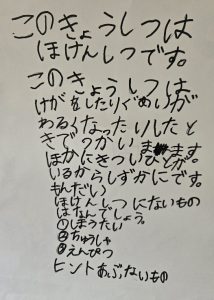 このきょうしつは
ほけんしつです。
このきょうしつは
けがをしたりぐあいが
わるくなったりしたと
きでつかいます。
ほかにきついひとが。
いるからしずかにです。
もんだい
ほけんしつにないもの
はなんでしょう。
①しょうたい
②ちゅうしゃ
③えんぴつ
ヒントあぶないもの